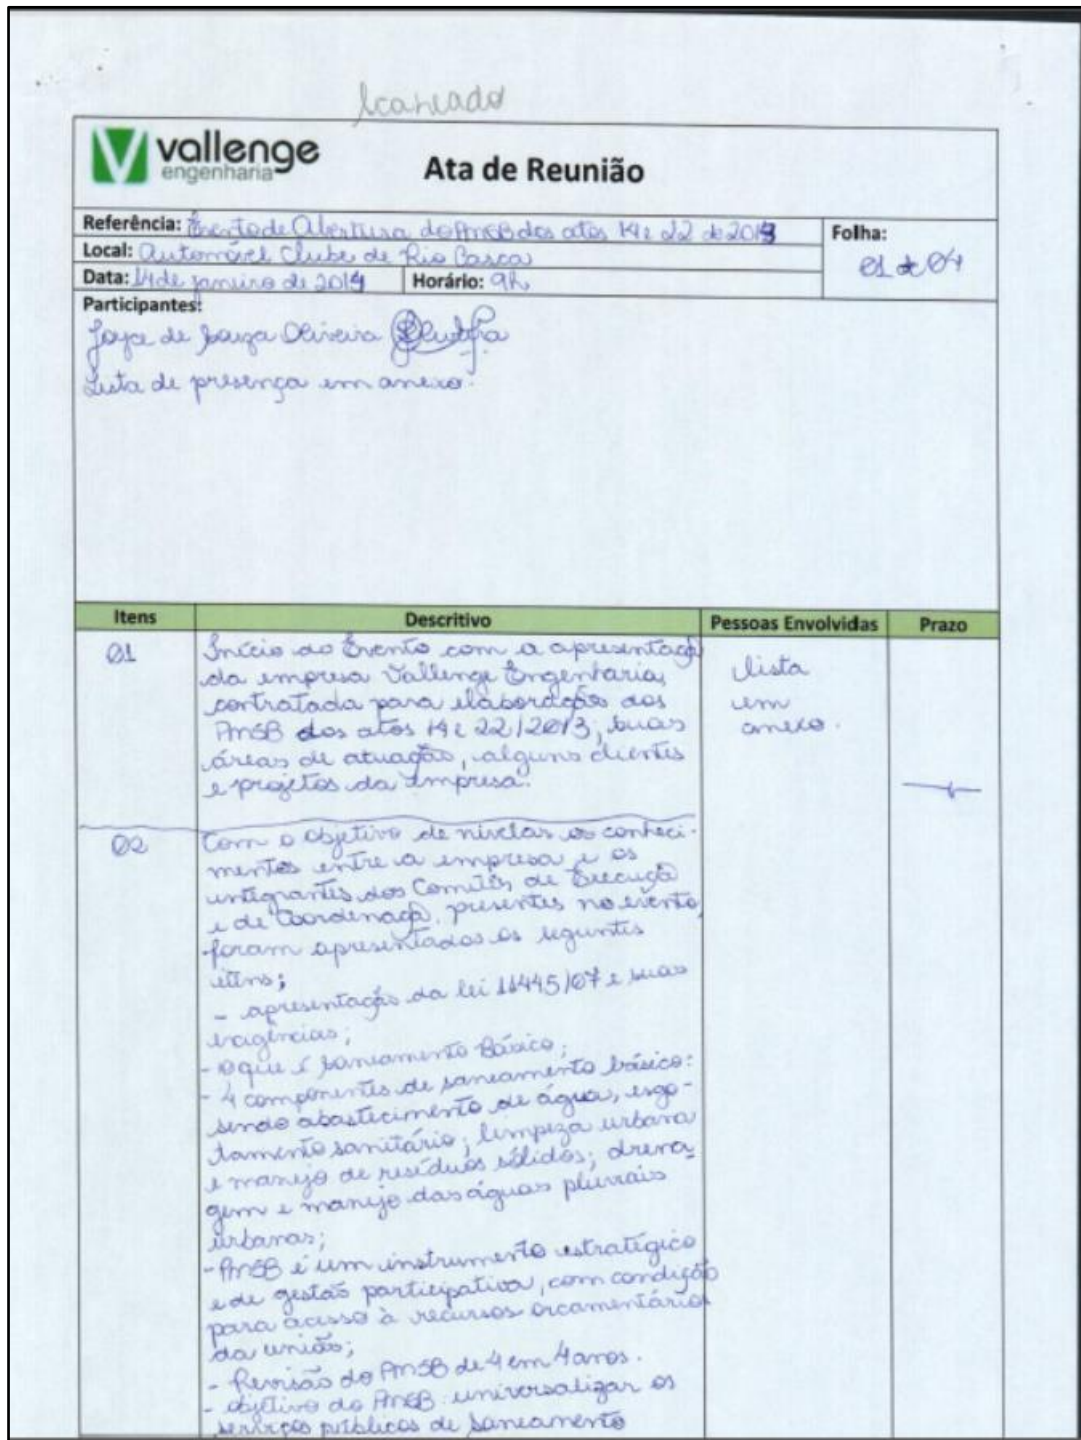 scaneado
vallenge
engenharia
Ata de Reunião
Referência: Evento de Abertura do PMSB dos atos 14 e 22 de 2013
Folha:
01 de 04
Local: Automóvel Clube de Rio Casca
Data: 14 de janeiro de 2014 Horário: 9h
Participantes:
Joyce de Souza Oliveira
Lista de presença em anexo.
Itens Descritivo Pessoas Envolvidas Prazo
01
Início do Evento com a apresentaçã
da empresa Vallenge Engenharia,
contratada para elaboração dos
PMSB dos atos 14 e 22/2013, suas
áreas de atuação, alguns clientes
e projetos da empresa.
lista
em
anexo.
02
Com o objetivo de nivelar os conheci-
mentos entre a empresa e os
integrantes dos Comitês de Execuçã
e de Coordenaçã, presentes no evento,
foram apresentados os seguintes
itens;
- apresentação da lei 11445/07 e suas
exigências;
- o que é saneamento Básico;
- 4 componentes de saneamento básico:
sendo abastecimento de água, esgo-
tamento sanitário; limpeza urbana
e manejo de resíduos sólidos; drena
gem e manejo das águas pluviais
urbanas;
- PMSB é um instrumento estratégico
e de gestão participativa, com condição
para acesso à recursos orcamentários
da união;
- Revisão do PMSB de 4 em 4 anos.
- objetivo do PMSB: universalizar os
serviços públicos de saneamento